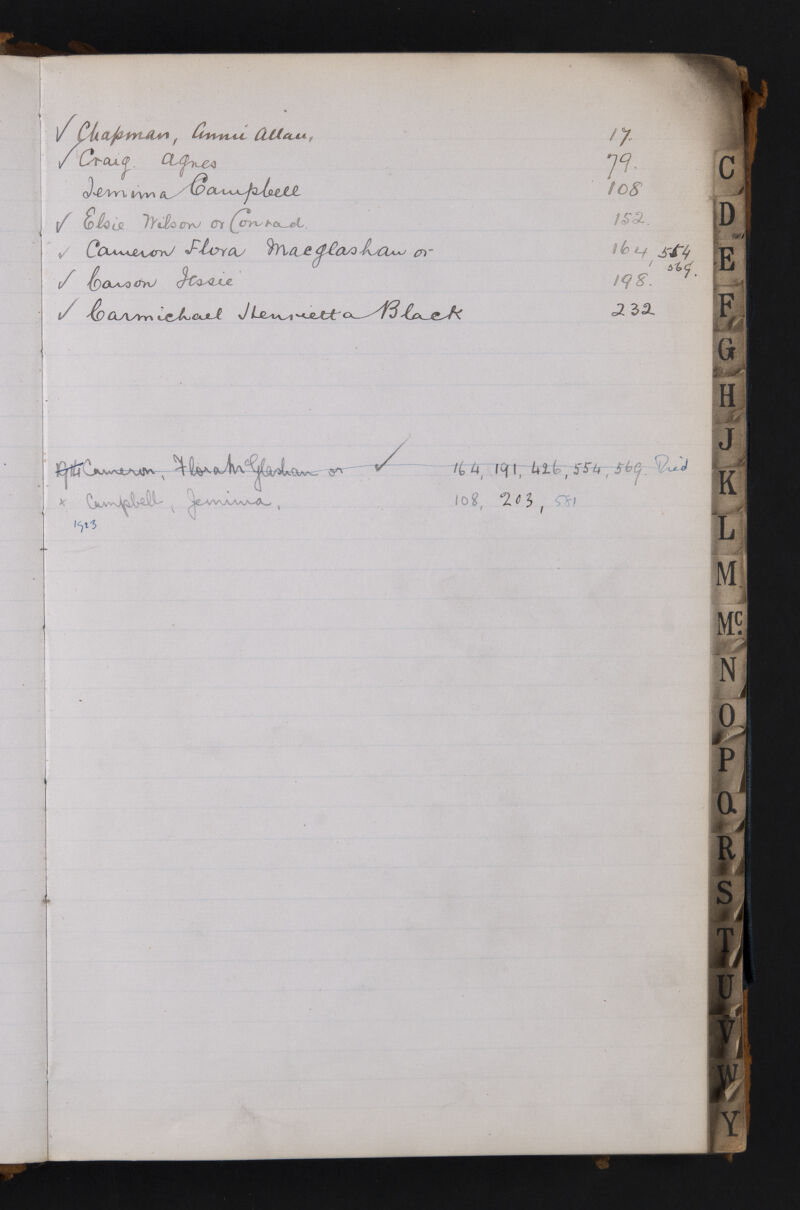 ✓ Chapman, Annie Allan, 17.
✓ Craig. Agnes 79.
Jemima Campbell 108
✓ Elsie Wilson or Conrad. 152.
✓ Cameron Flora Macglashan or 164, 554
569.
✓ Carson Jessie 198.
✓ Carmichael Henrietta Black 232
Cameron, Flora McGlashan or ✓ 164, 191, 426, 554, 569. Died
x Campbell, Jemima, 108, 203, 581
1923
C
D
E
F
G
H
J
K
L
M
Mc.
N
O
P
Q
R
S
T
U
V
W
Y